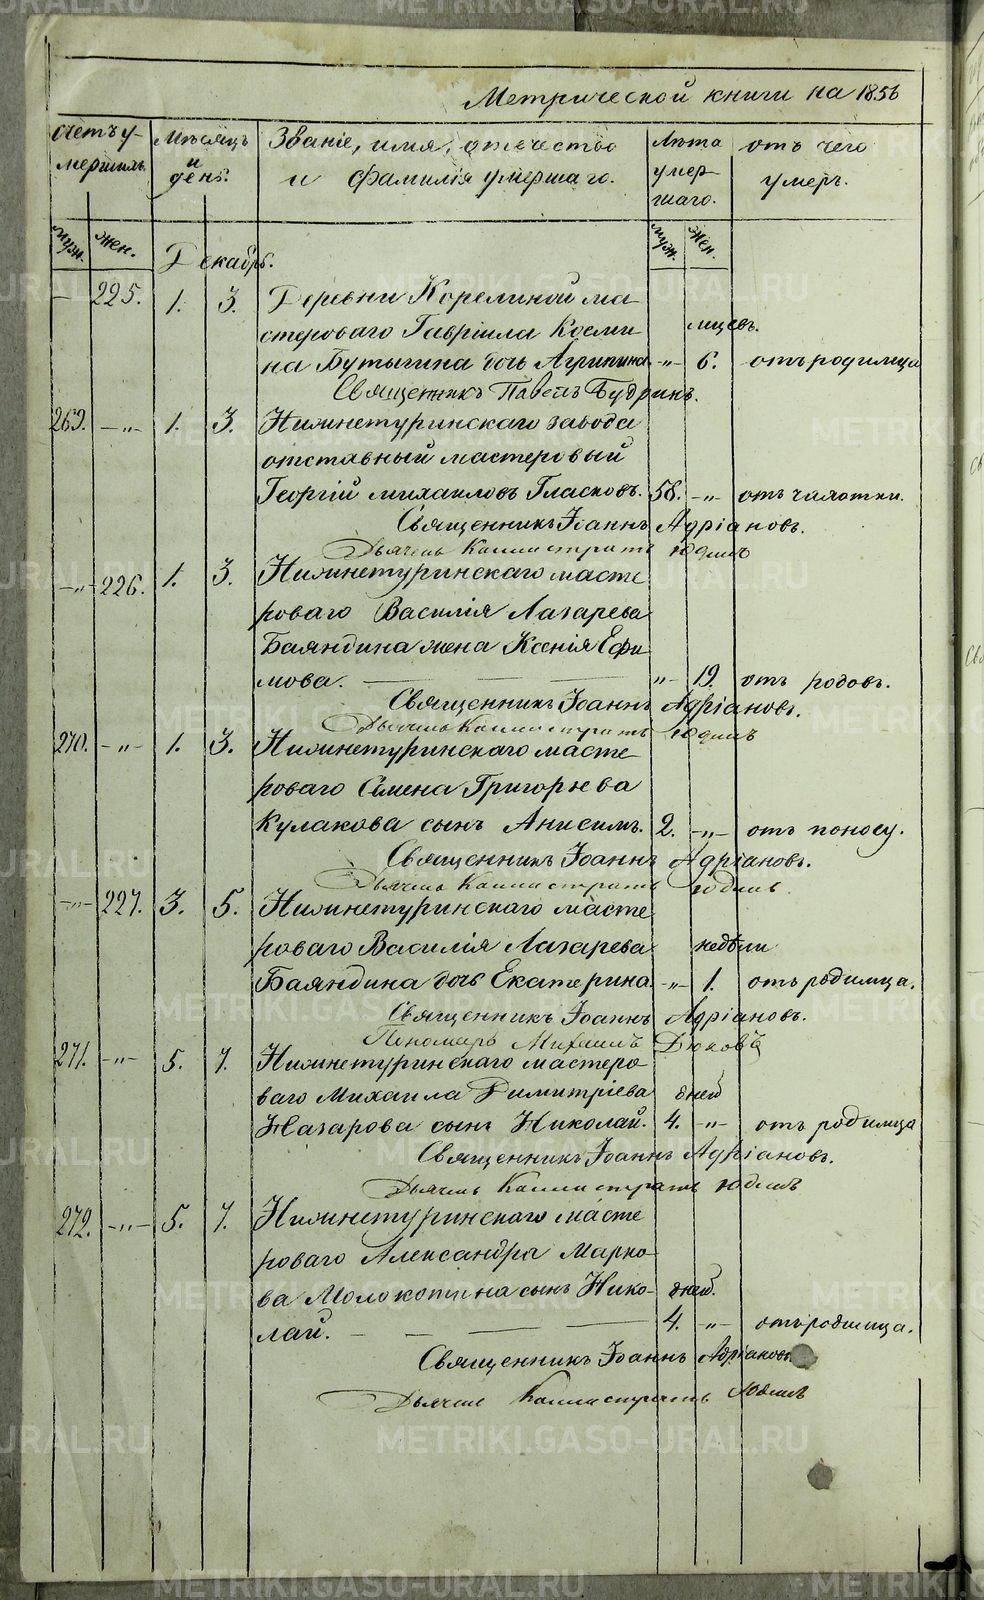 Метрической книги на 1856
Счетъ у-
мершихъ.
Мѣсяцъ
и
день.
Званіе, имя, отечество
и фамилія умершаго.
Лѣта
умер-
шаго.
отъ чего
умеръ.
муж. жен. муж. жен.
Декабрь.
— 225. 1. 3. Деревни Корелиной ма-
стероваго Гавріила Косми- мцевъ.
на Бутыгина дочь Агрипина -"- 6. отъ родимца
Священникъ Павелъ Будринъ.
269. -"- 1. 3. Нижнетуринскаго завода
отставный мастеровый
Георгій Михаиловъ Гласковъ. 58. -"- отъ чахотки.
Священникъ Іоаннъ Адріановъ.
Дьячекъ Каллистратъ Юдинъ
-"- 226. 1. 3. Нижнетуринскаго масте
роваго Василія Лазарева
Баяндина жена Ксенія Ефи
мова. "- 19. отъ родовъ.
Священникъ Іоаннъ Адріановъ.
Дьячекъ Каллистратъ Юдинъ
270. -"- 1. 3. Нижнетуринскаго масте
роваго Семена Григорьева
Кулакова сынъ Анисимъ. 2. -"- отъ поносу.
Священникъ Іоаннъ Адріановъ.
Дьячекъ Каллистратъ Юдинъ.
-"- 227. 3. 5. Нижнетуринскаго масте
роваго Василія Лазарева недѣли
Баяндина дочь Екатерина. -"- 1. отъ родимца.
Священникъ Іоаннъ Адріановъ.
Пономарь Михаилъ Дюковъ
271. -"- 5. 7. Нижнетуринскаго мастеро
ваго Михаила Димитріева дней
Назарова сынъ Николай. 4. -"- отъ родимца
Священникъ Іоаннъ Адріановъ.
Дьячекъ Каллистратъ Юдинъ
272. -"- 5. 7. Нижнетуринскаго масте
роваго Александра Марко-
ва Молокотина сынъ Нико- дней.
лай. 4. -"- отъ родимца.
Священникъ Іоаннъ Адріановъ.
Дьячекъ Каллистратъ Юдинъ
METRIKI.GASO-URAL.RU